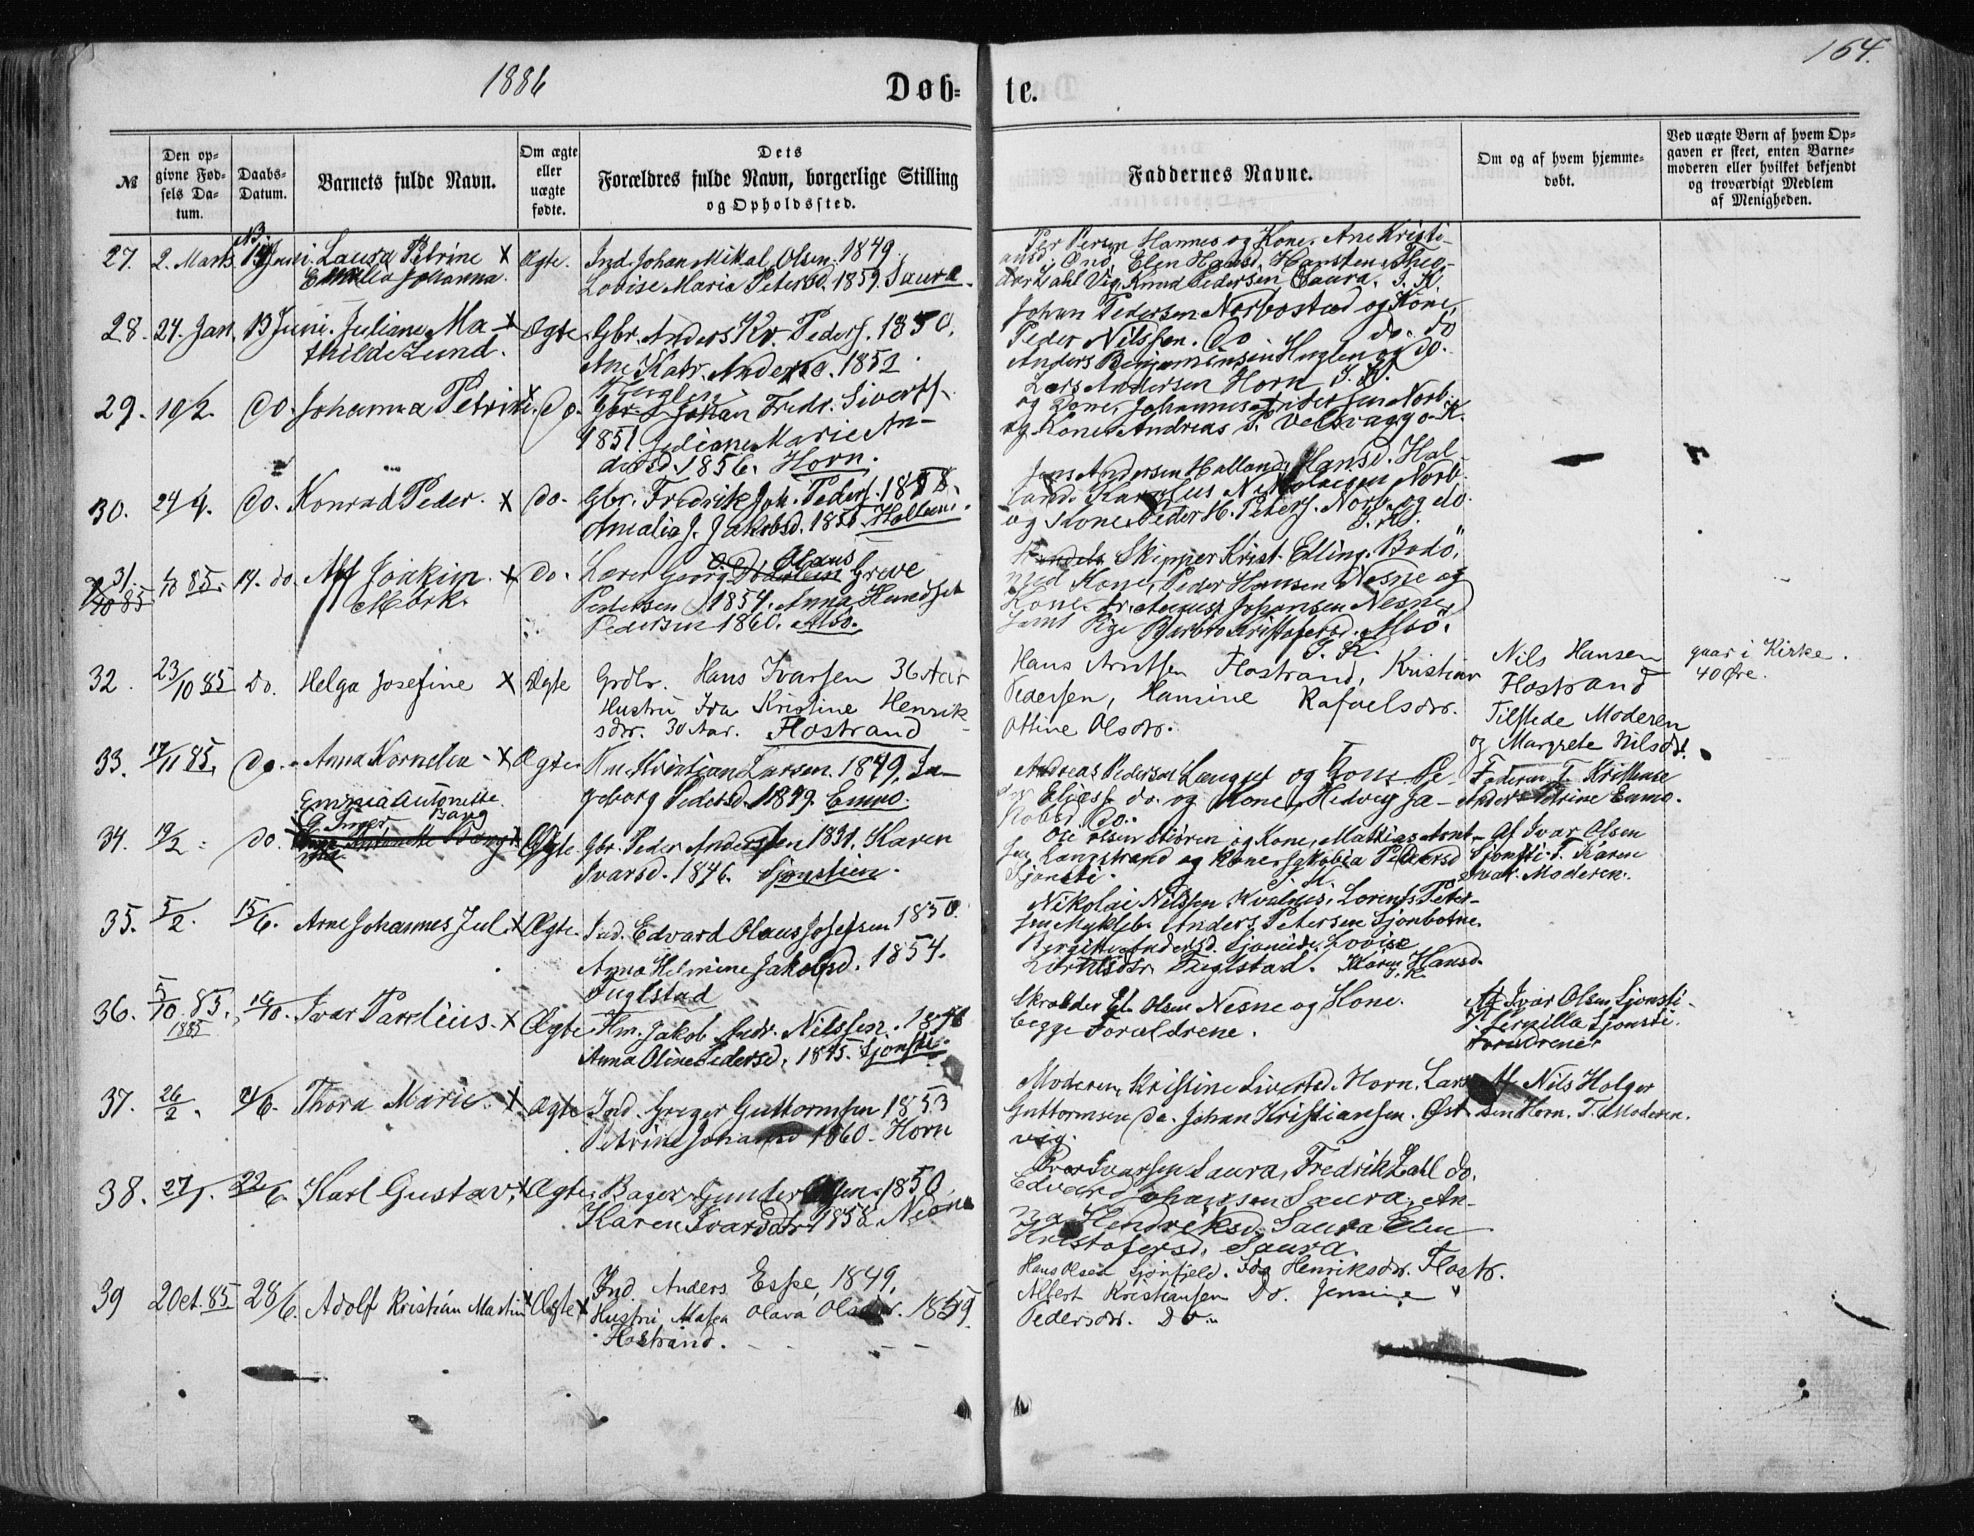 1886
Døb=
te.
164.
№
Den op=
givne Fød=
sels Da=
tum.
Daabs=
Datum.
Barnets fulde Navn.
Om ægte
eller
uægte
fødte.
Dets
Forældres fulde Navn, borgerlige Stilling
og Opholdssted.
Faddernes Navne.
Om og af hvem hjemme=
døbt.
Ved uægte Børn af hvem Op=
gaven er skeet, enten Barne=
moderen eller hvilket bekjendt
og troværdigt Medlem
af Menigheden.
27. 2. Marts Juni. Laura Petrine x Ægte. Ind. Johan Mikal Olsen. 1849.
Emilie Johanna. Lovise Maria Petersd. 1859. Saura.
Per Persen Hannes og Kone. Ane Kristi-
Elen Hansd. Hansten. Theo-
dor Dahl Vig. Knud Pedersen Saura. I. K.
28. 24. Jan. 13 Juni. Juliane Ma- x Ægte. Gbr. Anders Kr. Peders. 1850.
thilde Lund. Ane Katr. Andersd. 1852.
Huglen
Johan Pedersen Norbostad og Kone,
Peder Nilssen. do. H do. do
Anders Benjaminsen Huglen og do.
29. 10/2. do. Johanna Petrine. x do. Gbr. Johan Fredr. Siverts.
1851. Juliane Marie An-
dersd. 1856. Horn.
Lars Andersen Horn, I. K.
og Kone, Johannes Pedersen Norb.
og Kone. Andreas P. Velsvaag o. K.
30. 24/4. do. Konrad Peder. x do. Gbr. Fredrik Joh. Peders. 1858.
Amalia J. Jakobsd. 1851. Holland.
Jens Andersen Holland, Hansd. Hol-
land. Karolus Nikolaisen Norb.
og Kone. Peder H. Peters. Norb. og do.
I. K.
31. 4/10 85. 14. do. Alf Joakim x do. Lærer Georg Olaus Greve
Mörk. Pedersen 1854. Anna Hundset
Pedersen 1860. Mo.
Skipper Krist. Edling. Bodö,
med Kone, Peder Hansen Nesne og
Kone. Dr. August Johansen Nesne,
samt Pige Barbro Kristofersd. Mo.
I. K.
32. 23/10 85 do. Helga Josefine x Ægte Grdbr. Hans Ivarsen 36 Aar
Hustru Ida Kristine Henrik-
sdtr. 30 Aar. Flostrand
Hans Arntsen Flostrand, Kristian
Pedersen, Hansine Rafaelsdtr.
Ottine Olsdtr.
Nils Hansen
Flostrand
Tilstede Moderen
og Margrete Nilsdtr.
gaar i Kirke.
40 Øre.
33. 17/11 85. do. Anna Kornelia x Ægte Hm. Kristian Larsen. 1849. In-
geborg Pedersd. 1849. Enmo.
Andreas Pedersen Langset og Kone. Pe-
der Eliass. do. og Kone, Hedvig Ja-
kobsd. do.
Faderen. T. Kristiane
Anders. Petrine Enmo.
34. 19/2. do. Emma Antonette
Bang
Ægte. Gbr. Peder Andersen 1831. Karen
Ivarsd. 1846. Sjonstien.
Ole Olsen Mören og Kone, Mathias Arnt-
sen Langstrand og Kone. Jakobia Pedersd
Sjonsti. I. K.
Af Ivar Olsen
Sjonsti. T. Karen
Ivar. Moderen.
35. 5/2. 15/6. Arne Johannes Jul. x Ægte. Ind. Edvard Olaus Josefsen 1850.
Anna Helmine Jakobsd. 1854.
Fuglstad
Nikolai Nilssen Kvalnes, Lorents Peter-
sen Mykleb. Anders Petersen Sjonbotne.
Bergitte Andersd. Sjonsti. Lovise
Fuglstad. Karen Hansd.
I. K.
36. 5/10 85. 10/10. Ivar Parelius. x Ægte Hm. Jakob Andr. Nilssen. 1848
1885
Anna Oline Pedersd. 1845. Sjonsti.
Skrædder El. Olsen Nesne og Kone.
begge Forældrene.
Af Ivar Olsen Sjonsti
T. Pernilla Sjonsti.
Forældrene.
37. 26/2. 21/6. Thora Marie. x Ægte Ind. Greger Guttormsen 1853
Petrine Johansd 1860. Horn
Moderen, Kristine Sivertsd. Horn. Lars
Guttormsen do. Johan Kristiansen. Øst-
vig.
Af Nils Holger
sen Horn. T. Moderen.
38. 27/1. 22/6. Karl Gustav. x Ægte. Bager Gunder Olsen. 1850
Karen Ivarsdtr 1858. Nesne
Ivar Ivarsen Saura, Fredrik Zahl do.
Edvard Johansen Saura. An-
na Hendriksd. Saura Elen
Kristofersd. Saura.
39 2 Oct. 85 28/6. Adolf Kristian Martin x Ægte x Ind. Anders Espe, 1849.
Hustru Masea Olava Olsdtr. 1859.
Flostrand.
Hans Olsen Sjonfjeld. Ida Henriksdtr. Flostr.
Albert Kristiansen Do. Jensine "
Pedersdtr. Do.